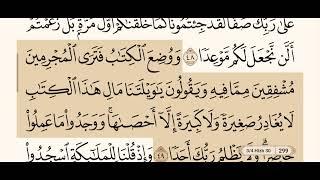 عَلَىٰ رَبِّكَ صَفًّا لَّقَدْ جِئْتُمُونَا كَمَا خَلَقْنَٰكُمْ أَوَّلَ مَرَّةٍۭ بَلْ زَعَمْتُمْ
أَلَّن نَّجْعَلَ لَكُم مَّوْعِدًا ٤٨ وَوُضِعَ ٱلْكِتَٰبُ فَتَرَى ٱلْمُجْرِمِينَ
مُشْفِقِينَ مِمَّا فِيهِ وَيَقُولُونَ يَٰوَيْلَتَنَا مَالِ هَٰذَا ٱلْكِتَٰبِ
لَا يُغَادِرُ صَغِيرَةً وَلَا كَبِيرَةً إِلَّآ أَحْصَىٰهَا ۚ وَوَجَدُوا۟ مَا عَمِلُوا۟
حَاضِرًا ۗ وَلَا يَظْلِمُ رَبُّكَ أَحَدًا ٤٩ وَإِذْ قُلْنَا لِلْمَلَٰٓئِكَةِ ٱسْجُدُوا۟
3/4 Hizb 30 | 299